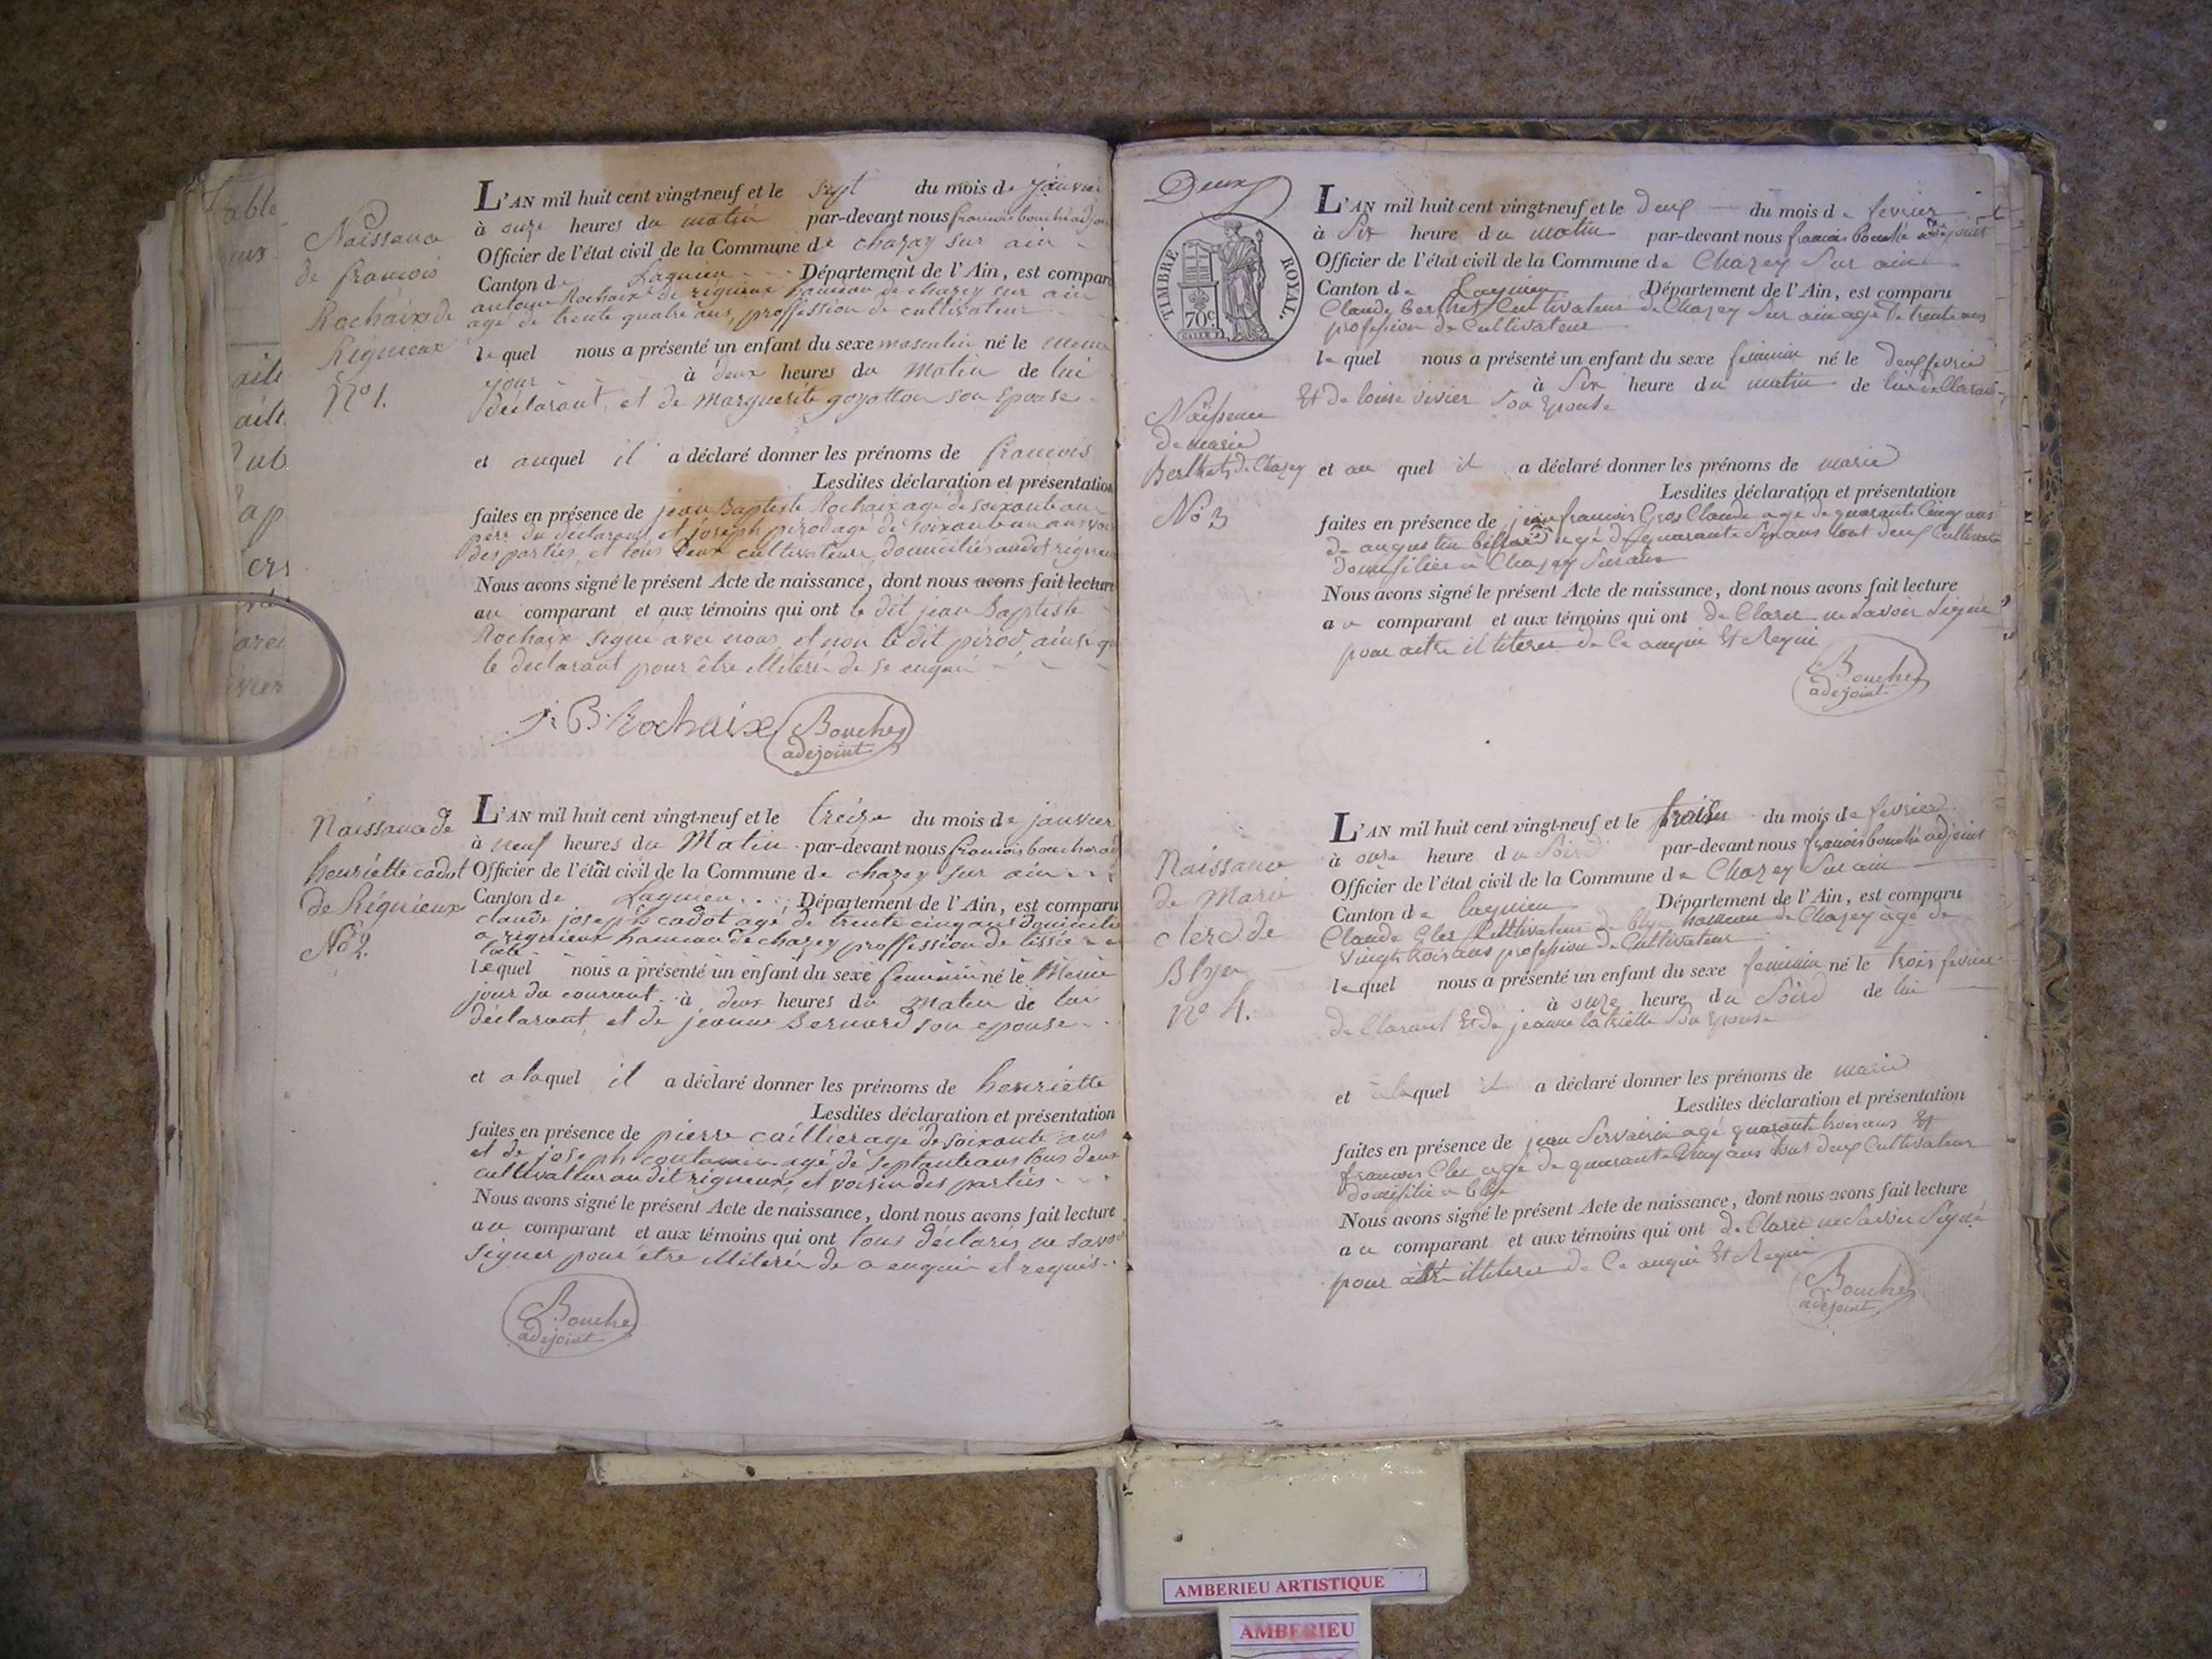 able
Naissance
de francois
Rochaix de
Rignieux
N° 1.
L'AN mil huit cent vingt-neuf et le sept du mois de janvier
à onze heures du matin par-devant nous francois bouché adjoi
Officier de l'état civil de la Commune de chazey sur ain
Canton de Lagnieu Département de l'Ain, est comparu
antoine Rochaix de rignieux hameau de chazey sur ain
agé de trente quatre ans, proffession de cultivateur
lequel nous a présenté un enfant du sexe masculin né le meme
jour à deux heures du Matin de lui
déclarant, et de Marguerite goyatton son Epouse
et auquel il a déclaré donner les prénoms de francois
Lesdites déclaration et présentation
faites en présence de jean Baptiste Rochaix agé de soixante an
pere du déclarant et joseph pirod agé de soixante un ans voi
des parties, et tous Deux cultivateurs domiciliés audit rignieu
Nous avons signé le présent Acte de naissance, dont nous avons fait lecture
au comparant et aux témoins qui ont le dit jean Baptiste
Rochaix signé avec nous, et non le dit pirod, ainsi q
le declarant pour être illiteré de ce enquis
J. B. Rochaix Bouché
adejoint
Naissance de
henriette cadot
de Rignieux
N° 2.
L'AN mil huit cent vingt-neuf et le treize du mois de janvier
à neuf heures du Matin par-devant nous francois bouché ad
Officier de l'état civil de la Commune de chazey sur ain
Canton de Lagnieu Département de l'Ain, est comparu
claude joseph cadot agé de trente cinq ans domicilié
a rignieux hameau de chazey proffession de tissier en
toile
lequel nous a présenté un enfant du sexe feminin né le Meme
jour du courant à deux heures du Matin de lui
déclarant, et de jeanne Bernard son epouse
et alaquel il a déclaré donner les prénoms de henriette
Lesdites déclaration et présentation
faites en présence de pierre caillier agé de soixante ans
et de joseph agé de septante ans tous deux
cultivateur au dit rignieux, et voisin des parties
Nous avons signé le présent Acte de naissance, dont nous avons fait lecture
au comparant et aux témoins qui ont tous déclarés ne savoir
signer pour être illiteré de ce enquis et requis
Bouché
adejoint
Deux
TIMBRE ROYAL.
70c.
Naissance
de marie
Berthet de Chazey
N° 3
L'AN mil huit cent vingt-neuf et le deux du mois de fevrier
à Six heure du matin par-devant nous francois Bouché adjoint
Officier de l'état civil de la Commune de Chazey Sur ain
Canton de Lagnieu Département de l'Ain, est comparu
Claude berthet Cultivateur de Chazey Sur ain agé de trente ans
profession de Cultivateur
lequel nous a présenté un enfant du sexe feminin né le deux fevrie
à Six heure du matin de lui declarant
Et de louise vivier Son Epouse
et au quel il a déclaré donner les prénoms de marie
Lesdites déclaration et présentation
faites en présence de jean francois Gros Claude agé de quarante Cinq ans
de augustin agé de quarante Six ans tout deux Cultivateur
domicilier a Chazey Sur ain
Nous avons signé le présent Acte de naissance, dont nous avons fait lecture
au comparant et aux témoins qui ont de Clarer ne Savoir Signe
pour aitre illiterer de Ce anqui Et Requi
Bouché
adejoint
Naissance
de Marie
clerc de
Blye
n° 4.
L'AN mil huit cent vingt-neuf et le trois du mois de fevrier
à onze heure du Soird par-devant nous francois bouché adjoint
Officier de l'état civil de la Commune de Chazey Sur ain
Canton de lagnieu Département de l'Ain, est comparu
Claude Cler Cultivateur de Blye hameau de Chazey agé de
vingt trois ans profession de Cultivateur
lequel nous a présenté un enfant du sexe feminin né le trois fevrie
à onze heure du Soird de lui
de Clarant Et de jeanne Son Epouse
et a laquel il a déclaré donner les prénoms de marie
Lesdites déclaration et présentation
faites en présence de jean Servairie agé quarante trois ans Et
francois Cler agé de quarante Cinq ans tous deux Cultivateur
domicilie a blye
Nous avons signé le présent Acte de naissance, dont nous avons fait lecture
au comparant et aux témoins qui ont de Clarer ne Savoir Signé
pour aitre illiterer de Ce anqui Et Requi
Bouché
adejoint
AMBERIEU ARTISTIQUE
AMBERIEU